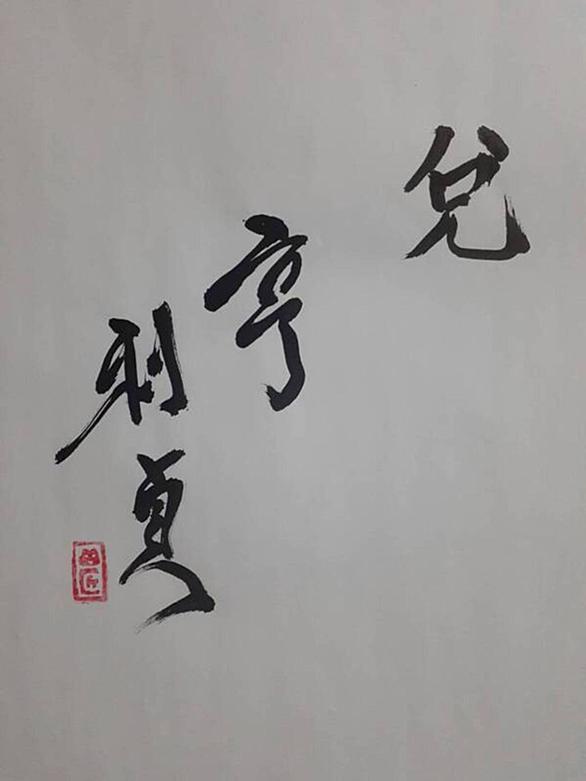 兌
亨
利貞